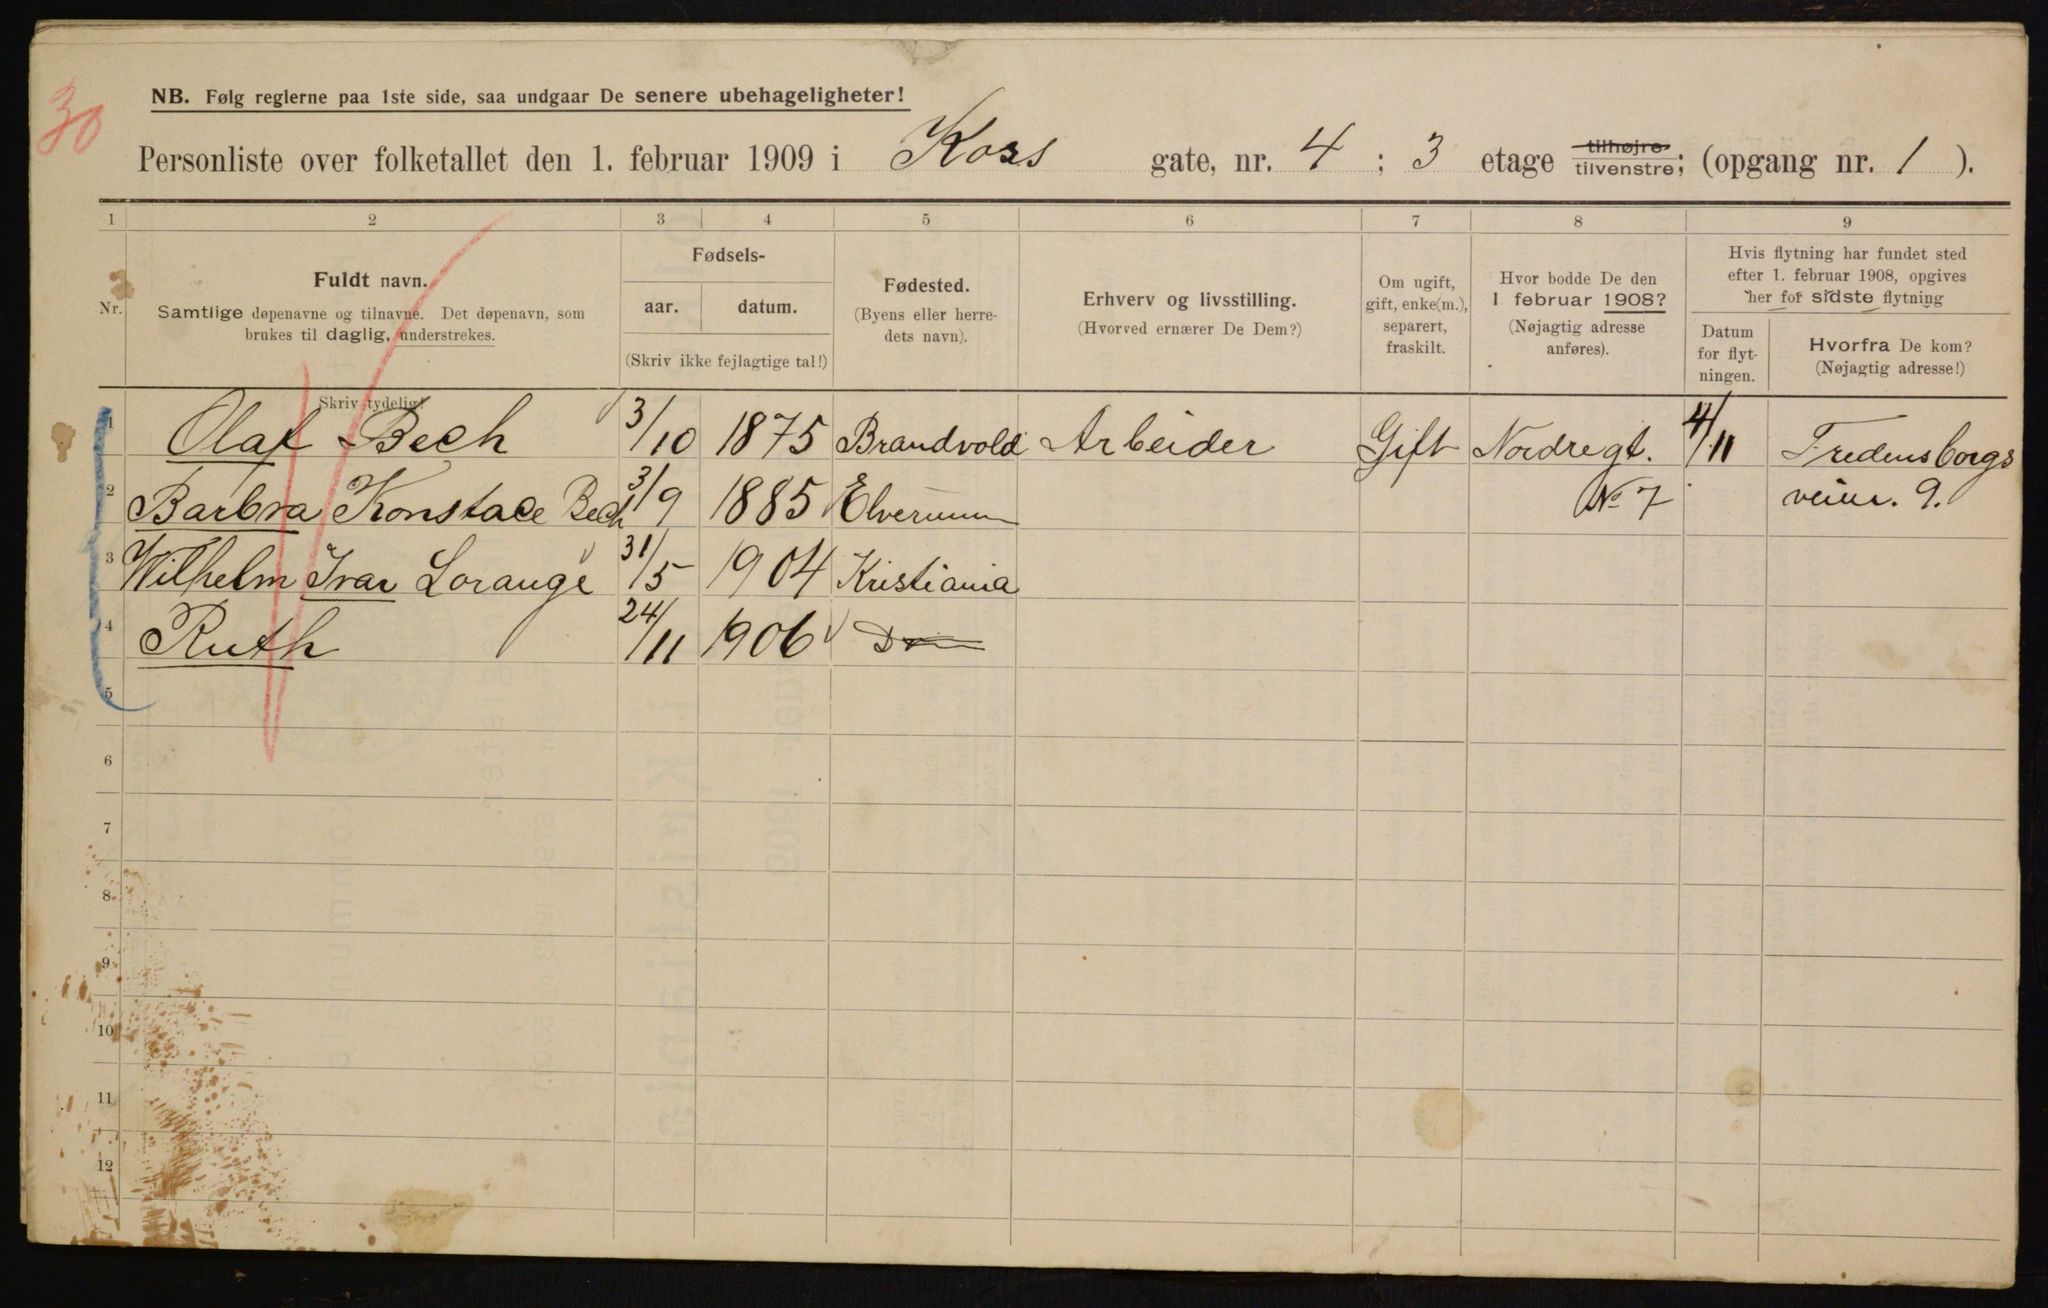 30
NB. Følg reglerne paa 1ste side, saa undgaar De senere ubehageligheter!
Personliste over folketallet den 1. februar 1909 i Korsgate, nr. 4; 3 etage tilhøjre tilvenstre; (opgang nr. 1).
1 2 3 4 5 6 7 8 9
Nr.
Fuldt navn.
Samtlige døpenavne og tilnavne. Det døpenavn, som
brukes til daglig, understrekes.
Skriv tydelig!
Fødsels-
aar. datum.
(Skriv ikke fejlagtige tal!)
Fødested.
(Byens eller herre-
dets navn).
Erhverv og livsstilling.
(Hvorved ernærer De Dem?)
Om ugift,
gift, enke(m.),
separert,
fraskilt.
Hvor bodde De den
1 februar 1908?
(Nøjagtig adresse
anføres).
Hvis flytning har fundet sted
efter 1. februar 1908, opgives
her for sidste flytning
Datum
for flyt-
ningen.
Hvorfra De kom?
(Nøjagtig adresse!)
1 Olaf Bech 3/10 1875 Brandvold Arbeider Gift Nordregt. 4/11 Fredensborgs
2 Barbra Konstace Bech 3/9 1885 Elverum No 7 veien. 9.
3 Wilhelm Ivar Lorange 31/5 1904 Kristiania
4 Ruth 24/11 1906 Do
5
6
7
8
9
10
11
12